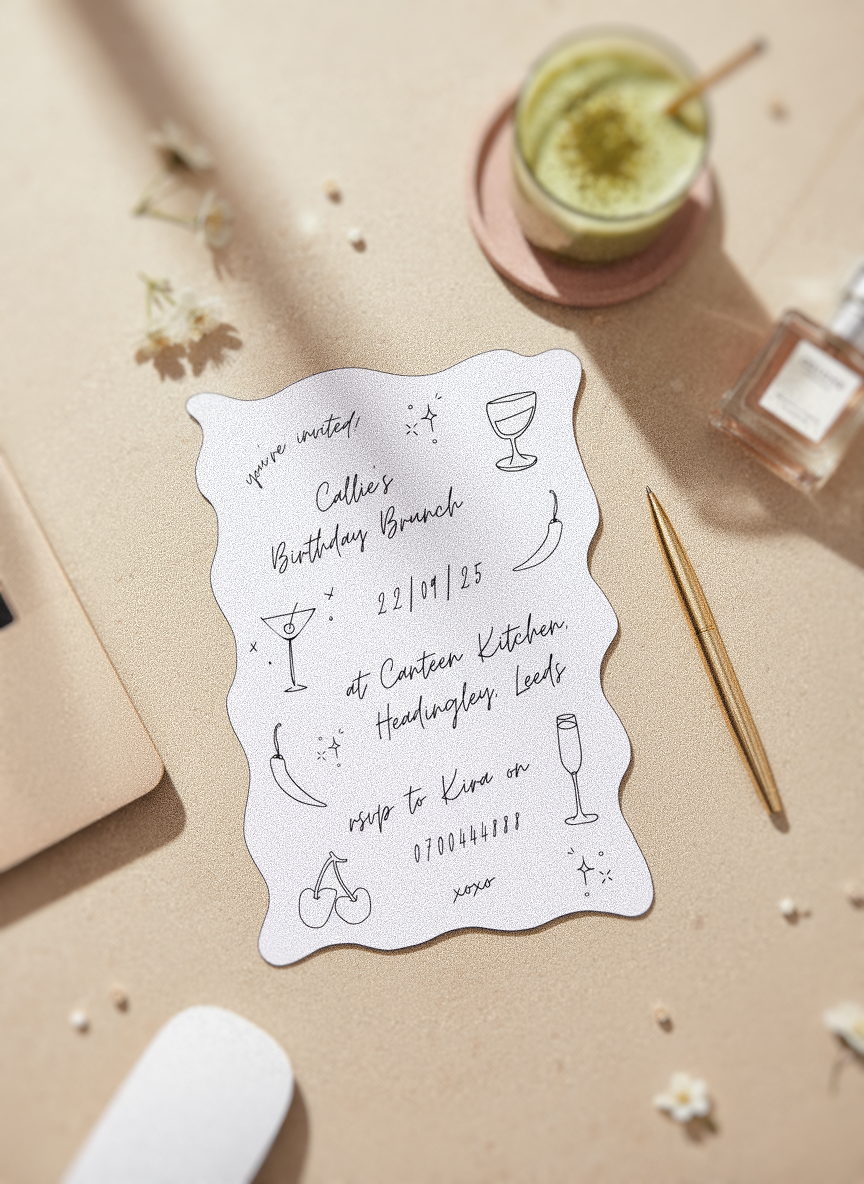 you're invited,
Callie's
Birthday Brunch
22/09/25
at Canteen Kitchen,
Headingley, Leeds
rsvp to Kira on
0700444888
xoxo